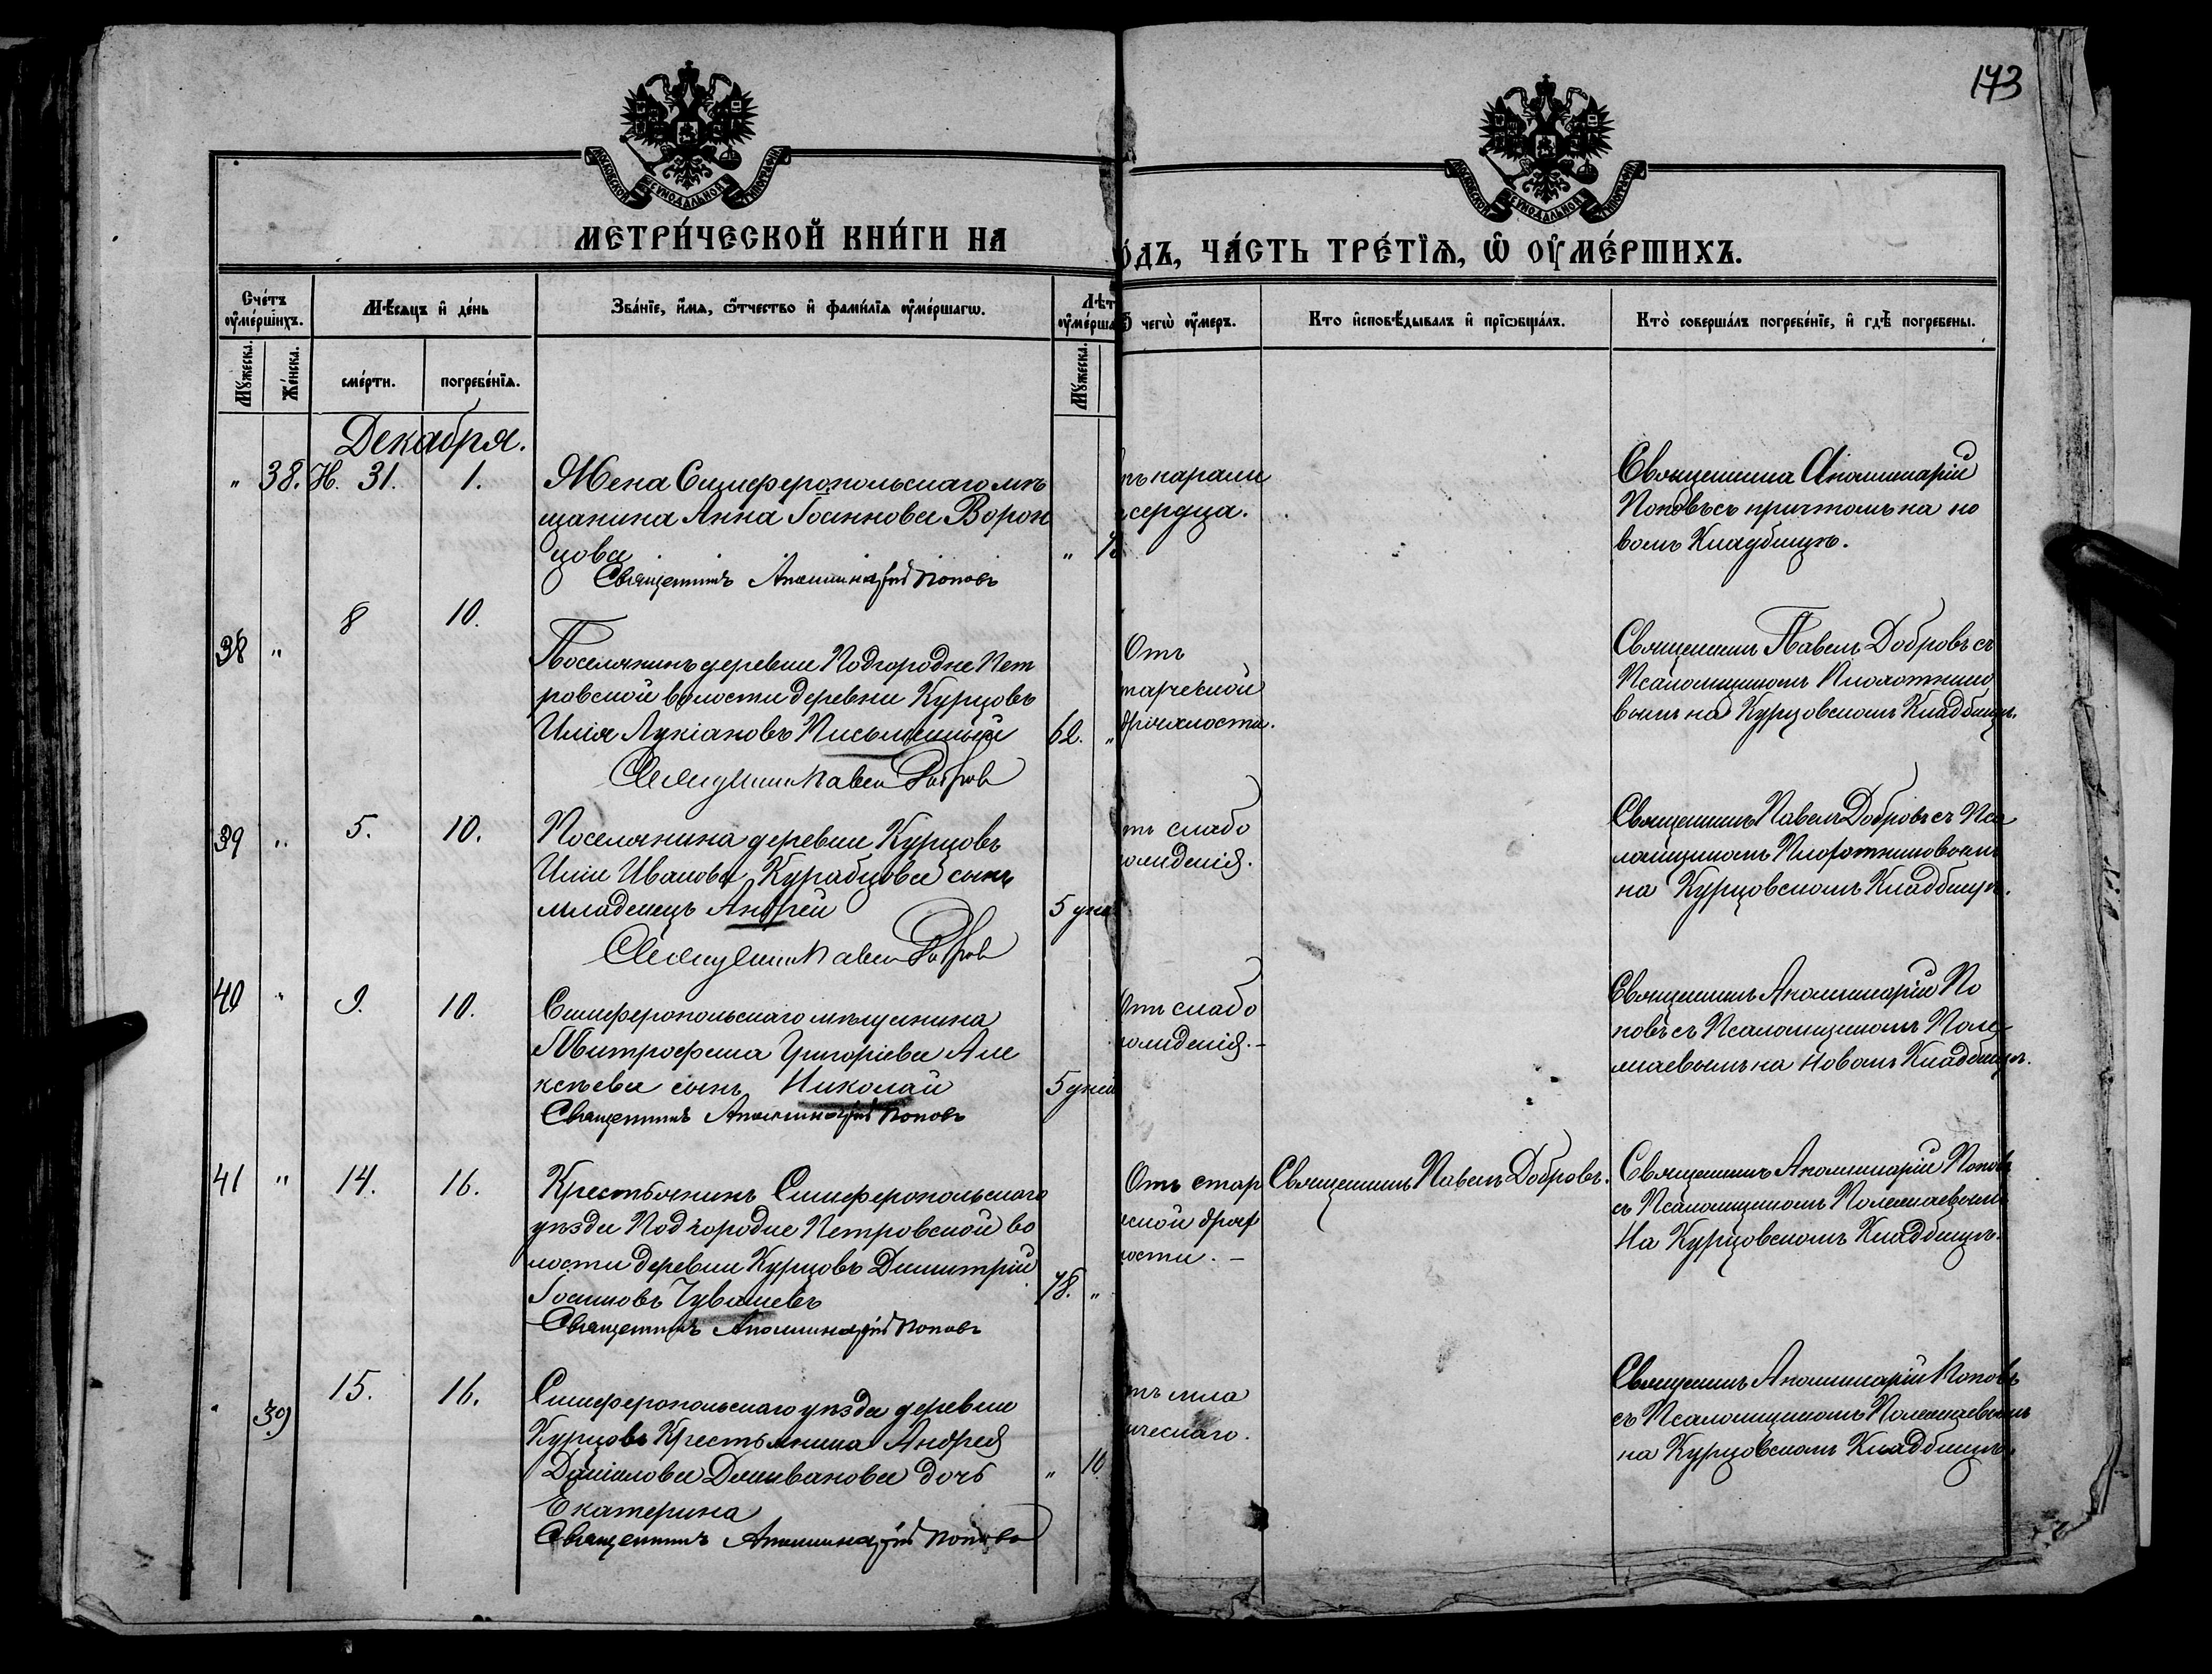 173
МОСКОВСКОЙ СУНОДАЛЬНОЙ ТИПОГРАФІИ
МОСКОВСКОЙ СУНОДАЛЬНОЙ ТИПОГРАФІИ
МЕТРИ́ЧЕСКОЙ КНИ́ГИ НА
О́ДЪ, ЧА́СТЬ ТРЕ́ТЇѦ, Ѡ ОУМЕ́РШИХЪ.
Сче́тъ оуме́ршихъ.
Мѣ́сяцъ и де́нь
Зва́нїе, и́мѧ, ѻ́тчество и фами́лїѧ оуме́ршагѡ.
Лѣт
оуме́рша
чегѡ̀ оу́меръ.
Кто и҆сповѣ́дывалъ и҆ прїѡбща́лъ.
Кто̀ соверша́лъ погребе́нїе, и҆ гдѣ̀ погребены.
Мꙋ́жеска.
Же́нска.
сме́рти.
погребе́нїѧ.
Мꙋ́жеска.
Декабря.
" 38. Н. 31. 1.
Жена Симферопольскаго мѣ
щанина Анна Іоаннова Ворон
цова
"
Священникъ Аполлинарій Поповъ
ъ парали
сердца.
Священника Аполлинарій
Поповъ съ причтомъ на но
вомъ Кладбищѣ.
38 " 8 10.
Поселянинъ деревни Подгородне Пет
ровской волости деревни Курцовъ
Илія Лукіановъ Письменный
62. "
Священникъ Павелъ Добровъ
Отъ
тарческой
дряхлости.
Священникъ Павелъ Добровъ съ
Псаломщикомъ Плотнико
вымъ на Курцовскомъ Кладбищѣ.
39 " 5. 10.
Поселянина деревни Курцовъ
Иліи Иванова Курабцова сынъ
младенецъ Андрей
5 дне
Священникъ Павелъ Добровъ
тъ слабо
ожденія.
Священникъ Павелъ Добровъ съ Пса
ломщикомъ Плотниковымъ
на Курцовскомъ Кладбищѣ.
40 " 9. 10.
Симферопольскаго мѣщанина
Митрофана Григоріева Але
ксѣева сынъ Николай
5 дней
Священникъ Аполлинарій Поповъ
Отъ слабо
ожденія. -
Священникъ Аполлинарій По
повъ съ Псаломщикомъ
на Новомъ Кладбищѣ.
41 " 14. 16.
Крестьянинъ Симферопольскаго
уѣзда Подгородне Петровской во
лости деревни Курцовъ Димитрій
Іоанновъ Чувашевъ
78. "
Священникъ Аполлинарій Поповъ
Отъ стар
ской дрях
ости. -
Священникъ Павелъ Добровъ.
Священникъ Аполлинарій Поповъ
съ Псаломщикомъ
На Курцовскомъ Кладбищѣ.
" 39 15. 16.
Симферопольскаго уѣзда деревни
Курцовъ Крестьянина Андрея
Даніилова дочь
Екатерина
" 10
Священникъ Аполлинарій Поповъ
тъ мла
ическаго.
Священникъ Аполлинарій Поповъ
съ Псаломщикомъ
на Курцовскомъ Кладбищѣ.